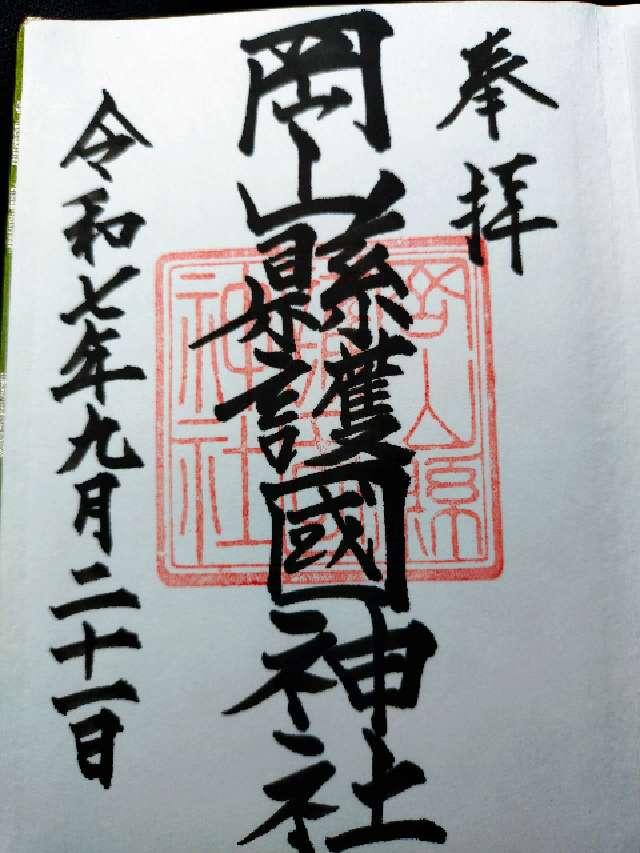 奉拝
岡山縣護國神社
岡山縣護國神社
令和七年九月二十一日